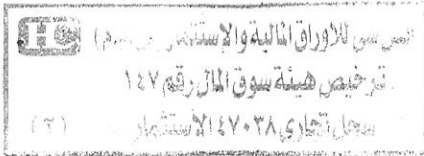 للاوراق المالية والاستثمار
ترخيص هيئة سوق المال رقم ١٤٧
سجل تجارى ٤٧٠٣٨ الاستثمار
(٣)